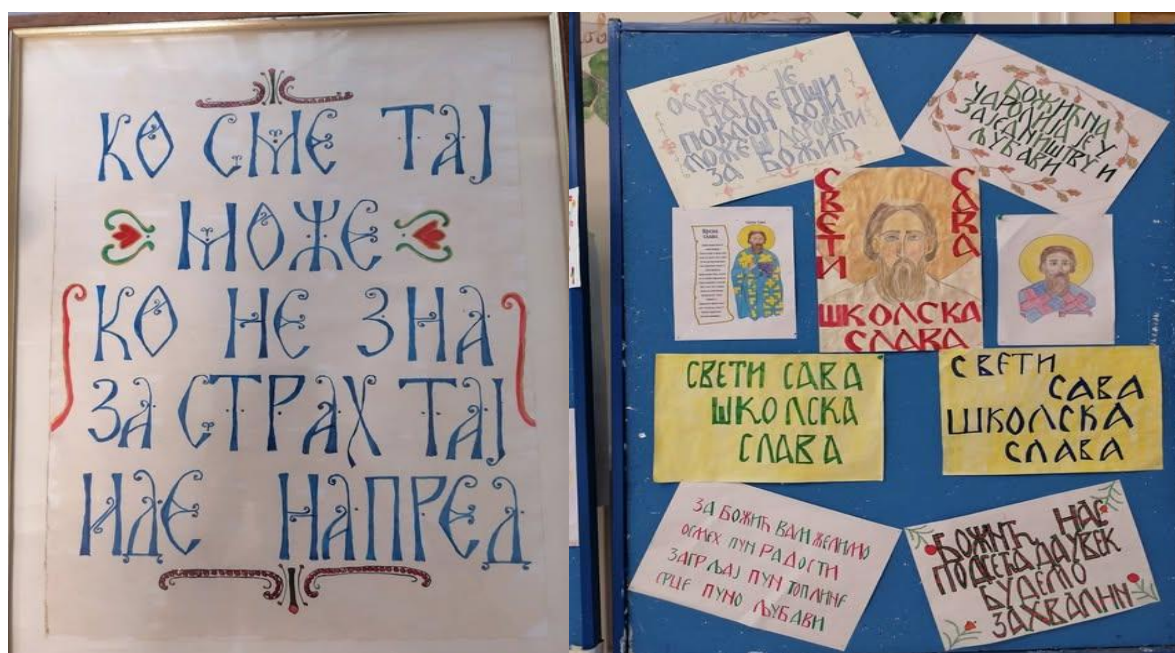 КО СМЕ ТАЈ
МОЖЕ
КО НЕ ЗНА
ЗА СТРАХ ТАЈ
ИДЕ НАПРЕД
ОСМЕХ ЈЕ
НАЈЛЕПШИ
ПОКЛОН КОЈИ
МОЖЕШ ДАРОВАТИ
ЗА БОЖИЋ
БОЖИЋНА
ЧАРОЛИЈА ЈЕ У
ЗАЈЕДНИШТВУ И
ЉУБАВИ
СВЕТИ
САВА
ШКОЛСКА
СЛАВА
СВЕТИ САВА
ШКОЛСКА
СЛАВА
СВЕТИ
САВА
ШКОЛСКА
СЛАВА
ЗА БОЖИЋ ВАМ ЖЕЛИМО
ОСМЕХ ПУН РАДОСТИ
ЗАГРЉАЈ ПУН ТОПЛИНЕ
СРЦЕ ПУНО ЉУБАВИ
БОЖИЋ НАС
ПОДСЕЋА ДА УВЕК
БУДЕМО
ЗАХВАЛНИ